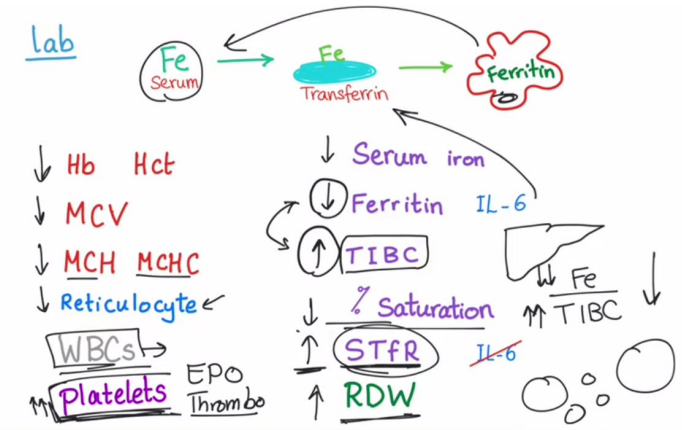 lab
Fe
Serum
Fe
Transferrin
Ferritin
↓ Hb Hct
↓ MCV
↓ MCH MCHC
↓ Reticulocyte ↙
WBCs →
↑↑ Platelets
EPO
Thrombo
↓ Serum iron
↓ Ferritin IL-6
↑ TIBC
↓ % Saturation
↑ STfR IL-6
↑ RDW
↓↓ Fe
↑↑ TIBC ↓